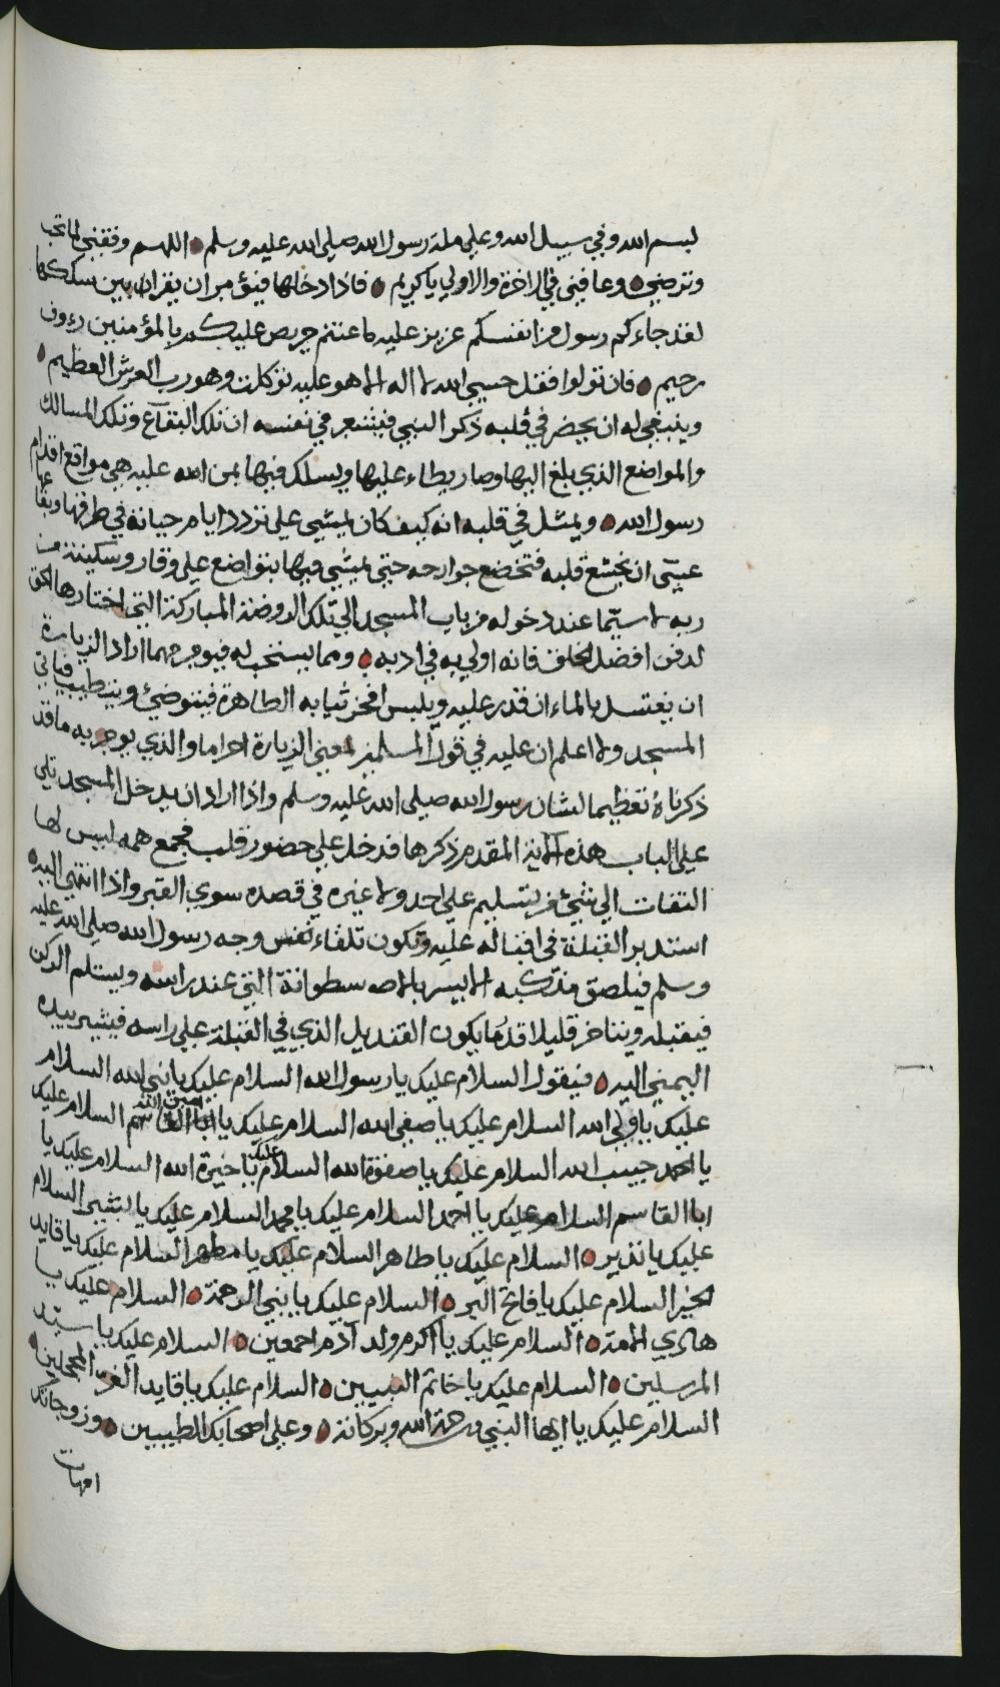 بسم الله وفي سبيل الله وعلي ملة رسول الله صلي الله عليه وسلم اللهم وفقني لما تحب
وترضي وعافني في الاخرة والاولي يا كريم فاذا دخلها فيؤمر ان يقرا بين سككها
لقد جاءكم رسول من انفسكم عزيز عليه ما عنتم حريص عليكم بالمؤمنين رءوف
رحيم فان تولوا فقل حسبي الله لا اله الا هو عليه توكلت وهو رب العرش العظيم
وينبغي له ان يحضر في قلبه ذكر النبي فيشعر في نفسه ان تلك البقاع وتلك المسالك
والمواضع الذي بلغ اليها وصار يطاء عليها ويسلك فيها بمن الله عليه هي مواقع اقدام
رسول الله ويمثل في قلبه انه كيف كان يمشي علي تردد ايام حياته في طرقها وبقاعها
عسى ان يخشع قلبه فتخضع جوارحه حتي يمشي فيها بتواضع علي وقار وسكينة من
ربه لا سيّما عند دخوله من باب المسجد الي تلك الروضة المباركة التي اختارها الحق
لدفن افضل الخلق فانه اولي به في ادبه ومما يستحب له فيومر مهما اراد الزيارة
ان يغتسل بالماء ان قدر عليه ويلبس افخر ثيابه الطاهرة فيتوضئ ويتطيب فياتي
المسجد ولا اعلم ان عليه في قول المسلمين لمعني الزيارة احراما والذي يومر به ما قد
ذكرناه تعظيما لشان رسول الله صلي الله عليه وسلم واذا اراد ان يدخل المسجد تلي
علي الباب هذه الاية المقدم ذكرها فدخل علي حضور قلب فجمع همه ليس لها
التفات الي شئ من تسليم علي احد ولا غيره في قصده سوي القبر واذا انتهي اليه
استدبر القبلة في اقباله عليه وتكون تلقاء نفس وجه رسول الله صلي الله عليه
وسلم فيلصق منكبه الايسر بالاسطوانة التي عند راسه ويستلم الركن
فيقبله ويتاخر قليلا قدر ما يكون القنديل الذي في القبلة علي راسه فيشير بيده
اليمني اليه فيقول السلام عليك يا رسول الله السلام عليك يا نبي الله السلام
عليك يا ولي الله السلام عليك يا صفي الله السلام عليك يا امين الله السلام عليك
يا احمد حبيب الله السلام عليك يا صفوة الله السلام عليك يا خيرة الله السلام عليك يا
ابا القاسم السلام عليك يا احمد السلام عليك يا محمد السلام عليك يا بشير السلام
عليك يا نذير السلام عليك يا طاهر السلام عليك يا مطهر السلام عليك يا قايد
الخير السلام عليك يا فاتح البر السلام عليك يا نبي الرحمة السلام عليك يا
هادي الامة السلام عليك يا اكرم ولد آدم اجمعين السلام عليك يا سيّد
المرسلين السلام عليك يا خاتم النبيين السلام عليك يا قايد الغرّ المحجلين
السلام عليك يا ايها النبي ورحمة الله وبركاته وعلي اصحابك الطيبين وزوجاتك
امهات